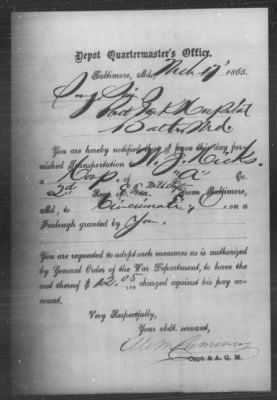 Depot Quartermaster's Office,
Baltimore, Md., Mch 17" 1865.
Surg in
Hospital
Balto Md.
You are hereby notified that I have this day fur-
nished Transportation W. J. Hicks
a Corp. of "A" Co.
2d Regt E. Tenn Mtd Inf from Baltimore,
Md., to Cincinnati, on a
Furlough granted by You.
You are requested to adopt such measures as is authorized
by General Order of the War Department, to have the
cost thereof $ 12.05 charged against his pay ac-
count.
Very Respectfully,
Your obdt. servant,
Capt. & A. Q. M.